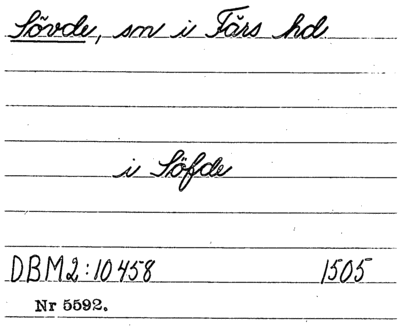 Sövde, sn i Färs hd
i Söfde
DBM2:10458 1505
Nr 5592.